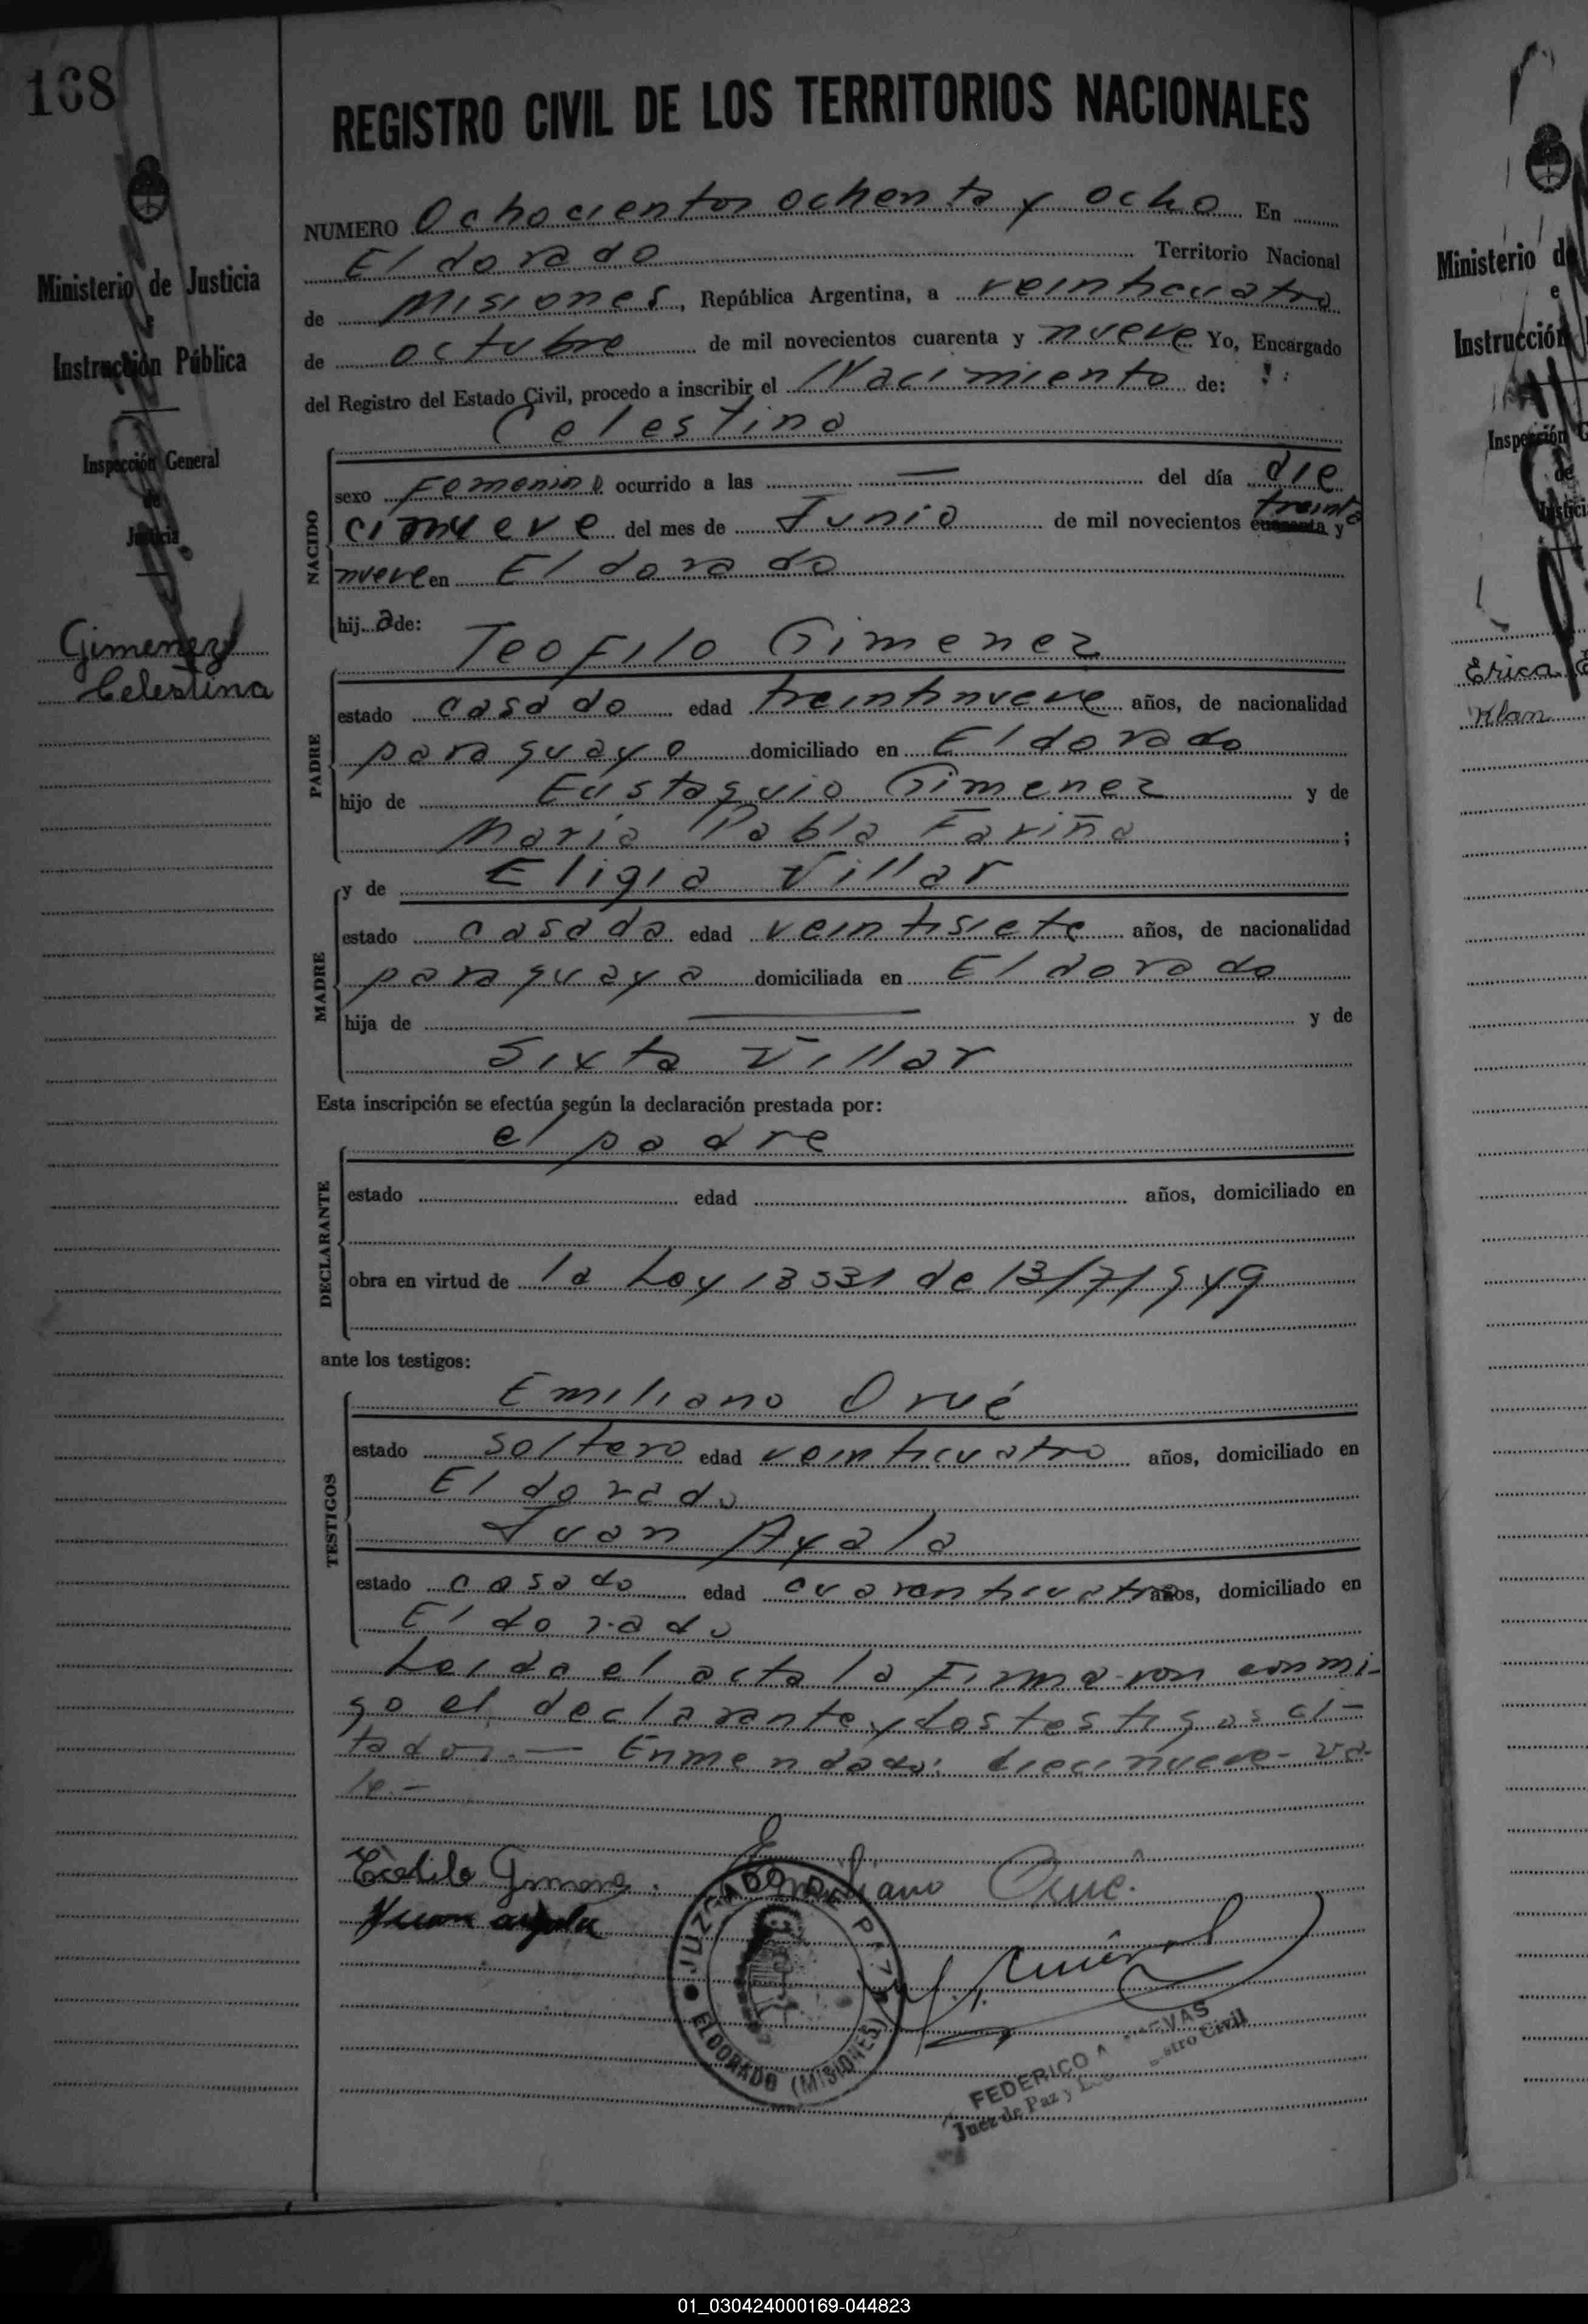 168
REGISTRO CIVIL DE LOS TERRITORIOS NACIONALES
Ministerio de Justicia
e
Instrucción Pública
Inspección General
de
Justicia
Gimenez
Celestina
NUMERO Ochocientos ochenta y ocho En
Eldorado Territorio Nacional
de Misiones, República Argentina, a veinticuatro
de octubre de mil novecientos cuarenta y nueve Yo, Encargado
del Registro del Estado Civil, procedo a inscribir el Nacimiento de:
Celestina
NACIDO
sexo Femenino ocurrido a las — del día die
cinueve del mes de Junio de mil novecientos treinta cuarenta y
nueve en Eldorado
hij a de:
Teofilo Gimenez
PADRE
estado casado edad treintinueve años, de nacionalidad
paraguaya domiciliado en Eldorado
hijo de Eustaquio Gimenez y de
Maria Pabla Fariña ;
y de Eligia Villar
MADRE
estado casada edad veintisiete años, de nacionalidad
paraguaya domiciliada en Eldorado
hija de — y de
Sixta Villar
Esta inscripción se efectúa según la declaración prestada por:
el padre
DECLARANTE
estado edad años, domiciliado en
obra en virtud de la Ley 13531 de 13/7/949
ante los testigos:
TESTIGOS
Emiliano Orué
estado soltero edad veinticuatro años, domiciliado en
Eldorado
Juan Ayala
estado casado edad cuarenticuatro años, domiciliado en
Eldorado
Leida el acta la Firmaron conmi-
go el declarante y los testigos ci-
tados.— Enmendado: diecinueve- va-
le.-
Teofilo Gimenez. Emiliano Orué.
Juan ayala
JUZGADO DE PAZ
ELDORADO (MISIONES)
FEDERICO A
Juez de Paz y
Civil
Ministerio d
e
Instrucción
Inspección G
de
Justici
Erica E
Klan
01_030424000169-044823